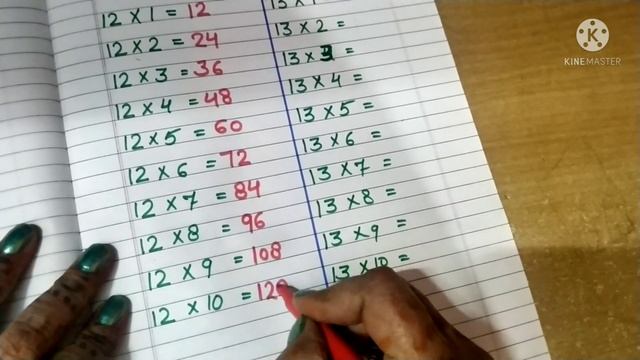 12 × 1 = 12
12 × 2 = 24
12 × 3 = 36
12 × 4 = 48
12 × 5 = 60
12 × 6 = 72
12 × 7 = 84
12 × 8 = 96
12 × 9 = 108
12 × 10 = 120
13 × 1
13 × 2 =
13 × 3 =
13 × 4 =
13 × 5 =
13 × 6 =
13 × 7 =
13 × 8 =
13 × 9 =
13 × 10 =
K
KINEMASTER